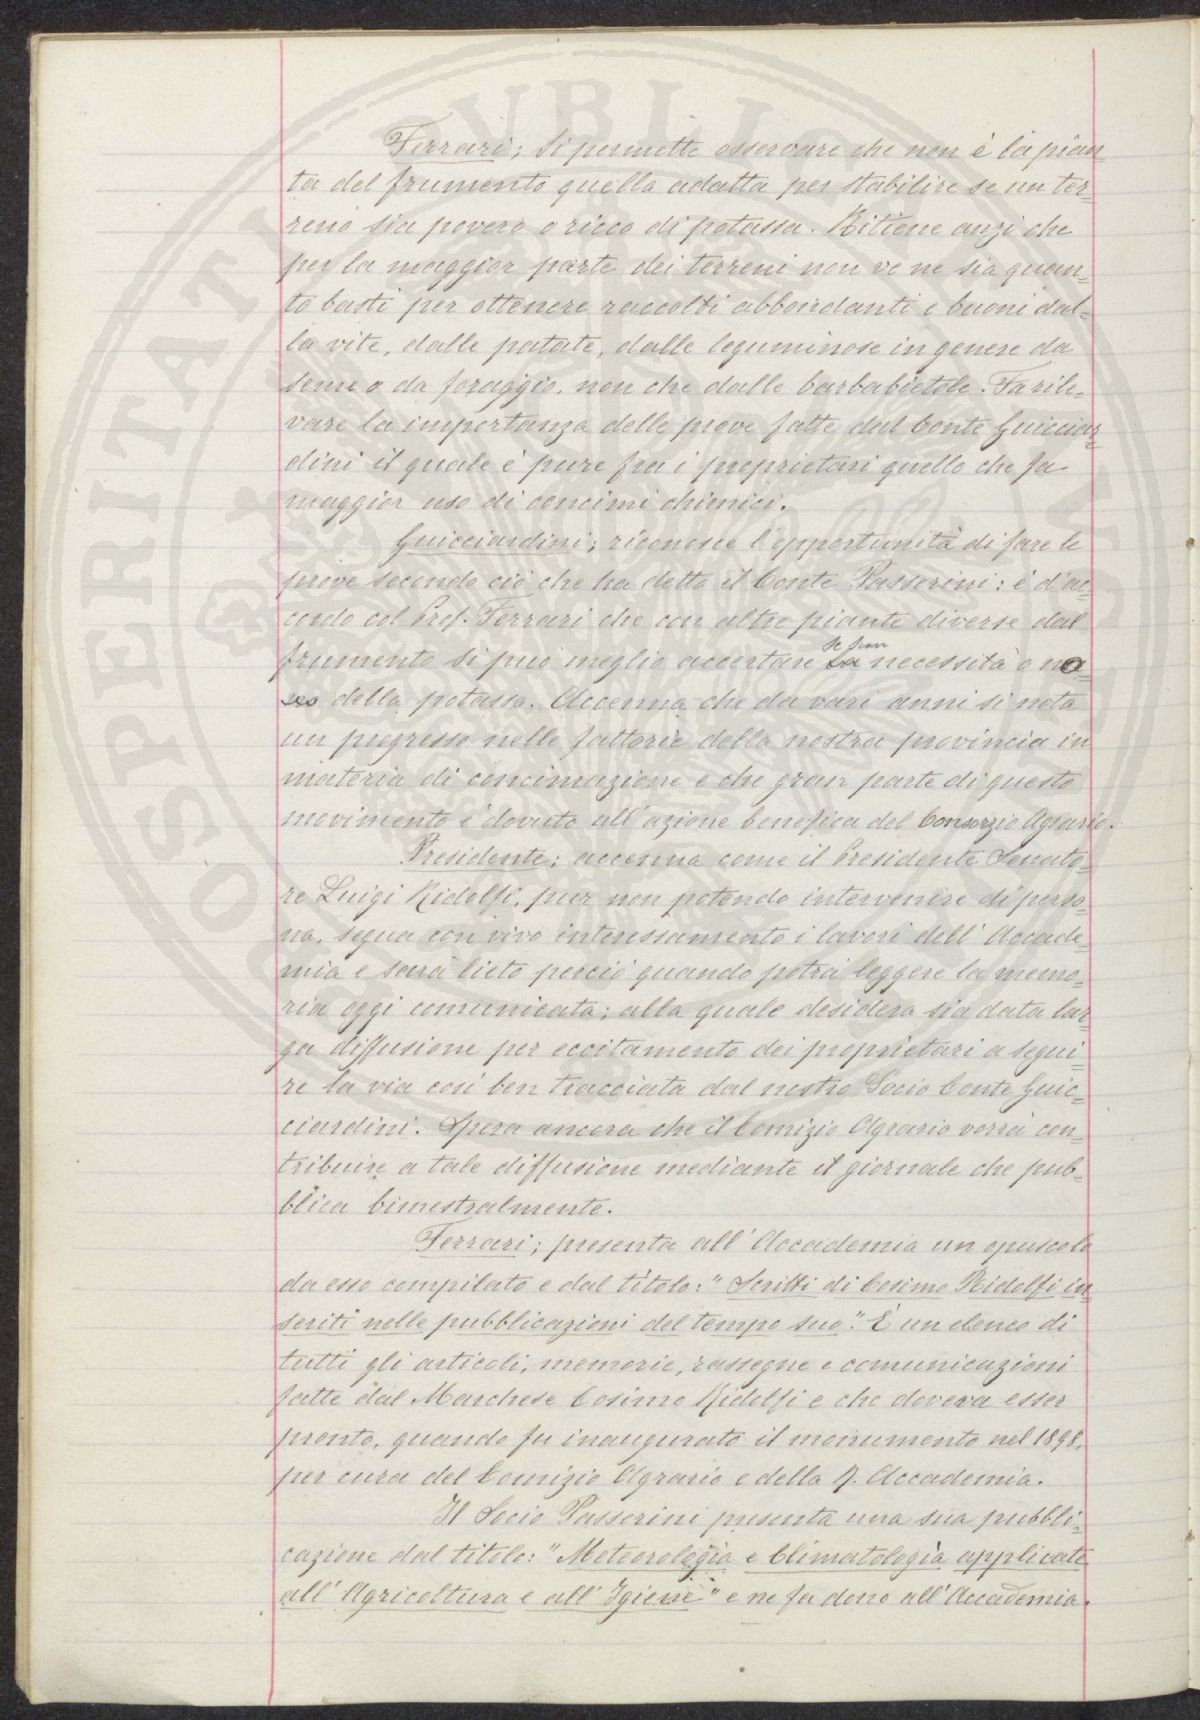 Ferrari; Si permette osservare che non è la pian
ta del frumento quella adatta per stabilire se un ter-
reno sia povero o ricco di potassa. Ritiene anzi che
per la maggior parte dei terreni non ve ne sia quan-
to basti per ottenere raccolti abbondanti e buoni dal-
la vite, dalle patate, dalle leguminose in genere da
seme o da foraggio, non che dalle barbabietole. Fa rile-
vare la importanza delle prove fatte dal Conte Guicciar-
dini il quale è pure fra i proprietari quello che fa
maggior uso di concimi chimici.
Guicciardini; riconosce l'opportunità di fare le
prove secondo ciò che ha detto il Conte Passerini: è d'ac-
cordo col Prof. Ferrari che con altre piante diverse dal
frumento si può meglio accertare se sian necessità o no
della potassa. Accenna che da vari anni si nota
un progresso nelle fattorie della nostra provincia in
materia di concimazione e che gran parte di questo
movimento è dovuto all'azione benefica del Consorzio Agrario.
Presidente; accenna come il Presidente Senato-
re Luigi Ridolfi, pur non potendo intervenire di perso-
na, segua con vivo interessamento i lavori dell'Accade-
mia e sarà lieto perciò quando potrà leggere la memo-
ria oggi comunicata; alla quale desidera sia data lar-
ga diffusione per eccitamento dei proprietari a segui-
re la via così ben tracciata dal nostro Socio Conte Guic-
ciardini. Spera ancora che il Comizio Agrario vorrà con-
tribuire a tale diffusione mediante il giornale che pub-
blica bimestralmente.
Ferrari; presenta all'Accademia un opuscolo
da esso compilato e dal titolo: "Scritti di Cosimo Ridolfi in
seriti nelle pubblicazioni del tempo suo". È un elenco di
tutti gli articoli, memorie, rassegne e comunicazioni
fatte dal Marchese Cosimo Ridolfi e che doveva esser
pronto, quando fu inaugurato il monumento nel 1898,
per cura del Comizio Agrario e della R. Accademia.
Il Socio Passerini presenta una sua pubbli-
cazione dal titolo: "Meteorologia e Climatologia applicate
all'Agricoltura e all'Igiene" e ne fa dono all'Accademia.